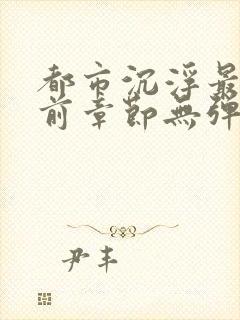 都市沉浮最
前章節無彈
尹丰